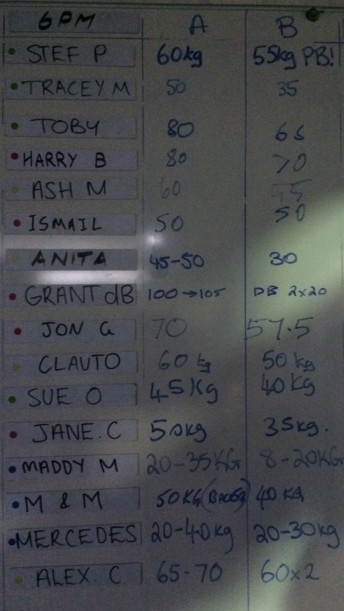 6PM A B
STEF P 60kg 55kg PB!
TRACEY M 50 35
TOBY 80 65
HARRY B 80 70
ASH M 60 45
ISMAIL 50 50
ANITA 45-50 30
GRANT dB 100→105 DB 2x20
JON G 70 57.5
CLAUTO 60kg 50kg
SUE O 45Kg 40kg
JANE.C 50kg 35kg.
MADDY M 20-35KG 8-20KG
M & M 50KG 40KG
MERCEDES 20-40kg 20-30kg
ALEX C 65-70 60x2